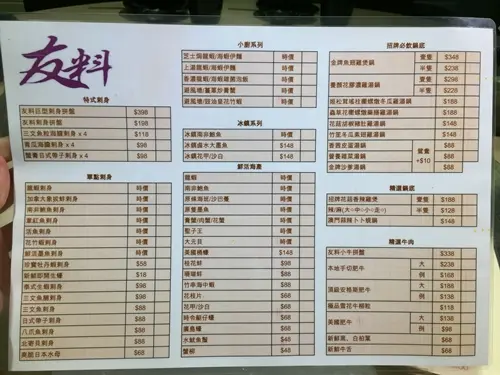 友料
特式刺身
友料巨型刺身拼盤 $398
友料刺身拼盤 $198
三文魚腩海膽刺身 x 4 $118
青瓜海膽刺身 x 4 $98
蟹膏日式帶子刺身 x 4 $98
單點刺身
龍蝦刺身 時價
加拿大象拔蚌刺身 時價
南非鮑魚刺身 時價
章紅魚刺身 時價
活魚刺身 時價
花竹蝦刺身 時價
鮮活墨魚刺身 時價
珍寶牡丹蝦刺身 $58
新鮮即開生蠔 $18
泰式生蝦刺身 $98
三文魚腩刺身 $98
三文魚刺身 $88
日式帶子刺身 $88
八爪魚刺身 $88
北寄貝刺身 $68
日本水母 $68
小廚系列
芝士焗龍蝦/海蝦伊麵 時價
上湯龍蝦/海蝦伊麵 時價
香濃龍蝦/海蝦湯泡飯 時價
避風塘/薑葱炒膏蟹 時價
避風塘/豉油皇花竹蝦 時價
冰鎮系列
冰鎮南非鮑魚 時價
冰鎮滷水大墨魚 $148
冰鎮花甲/沙白 $148
鮮活海產
龍蝦 時價
南非鮑魚 時價
原條海斑/沙巴躉 時價
原隻墨魚 時價
膏蟹/肉蟹/花蟹 時價
聖子王 時價
大元貝 時價
美國桶蠔 $148
桂花蚌 $98
珊瑚蚌 $88
竹串海中蝦 $88
花枝片 $68
花甲/沙白 $68
時令艇仔蠔 $68
廣島蠔 $68
水魷魚鬚 $48
蟹柳 $48
招牌必飲鍋底
金牌魚翅雞煲鍋 壹隻 $348
半隻 $238
養顏花膠濃雞湯鍋 壹隻 $298
半隻 $228
$188
蟲草花 $188
$148
竹笙冬瓜素翅雞湯鍋 $148
香茜皮蛋湯鍋 鴛鴦 +$10 $88
$88
金牌沙爹湯鍋 $88
精選鍋底
招牌花菇香辣雞煲 壹隻 $188
辣/麻(大○中○小○走○) 半隻 $128
$148
精選牛肉
友料小牛拼盤 $338
本地手切肥牛 大 $238
例 $168
頂級安格斯肥牛 大 $188
例 $138
極品雪花牛柳粒 $118
美國肥牛 大 $138
例 $98
$68
新鮮牛舌 $68